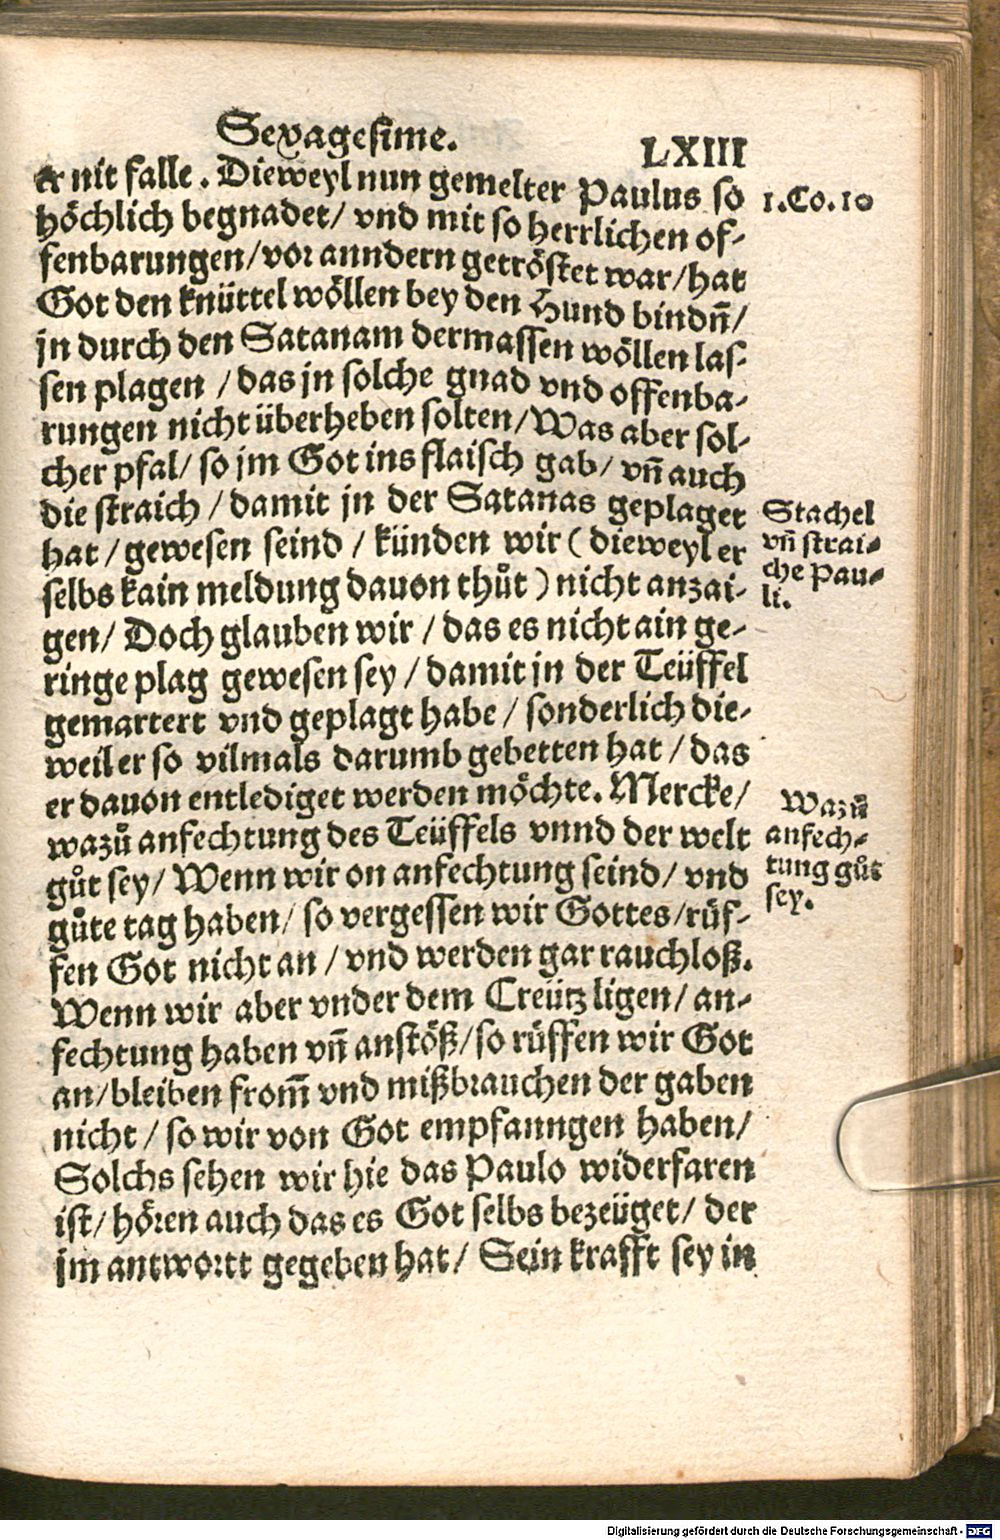 Sexagesime.
LXIII
er nit falle. Dieweyl nun gemelter Paulus so
1.Co.10
höchlich begnadet/ vnd mit so herrlichen of-
fenbarungen/vor anndern getröstet war/hat
Got den knüttel wöllen bey den Hund bindn̄/
jn durch den Satanam dermassen wöllen las-
sen plagen /das jn solche gnad vnd offenba-
rungen nicht überheben solten/Was aber sol-
cher pfal/ so jm Got ins flaisch gab/ vn̄ auch
die straich /damit jn der Satanas geplaget
hat /gewesen seind / künden wir ( dieweyl er
selbs kain meldung dauon thůt ) nicht anzai-
gen/ Doch glauben wir /das es nicht ain ge-
ringe plag gewesen sey /damit jn der Teüffel
gemartert vnd geplagt habe / sonderlich die-
weil er so vilmals darumb gebetten hat /das
er dauon entlediget werden möchte. Mercke/
wazů anfechtung des Teüffels vnnd der welt
gůt sey/ Wenn wir on anfechtung seind/ vnd
gůte tag haben/ so vergessen wir Gottes/rüf-
fen Got nicht an /vnd werden gar rauchloß.
Wenn wir aber vnder dem Creütz ligen/ an-
fechtung haben vn̄ anstöß/so rüffen wir Got
an/bleiben from̄ vnd mißbrauchen der gaben
nicht /so wir von Got empfanngen haben/
Solchs sehen wir hie das Paulo widerfaren
ist/ hören auch das es Got selbs bezeüget/ der
jm antwortt gegeben hat/ Sein krafft sey in
Stachel
vn̄ strai-
che Pau-
li.
Wazů
anfech-
tung gůt
sey.
Digitalisierung gefördert durch die Deutsche Forschungsgemeinschaft - DFG